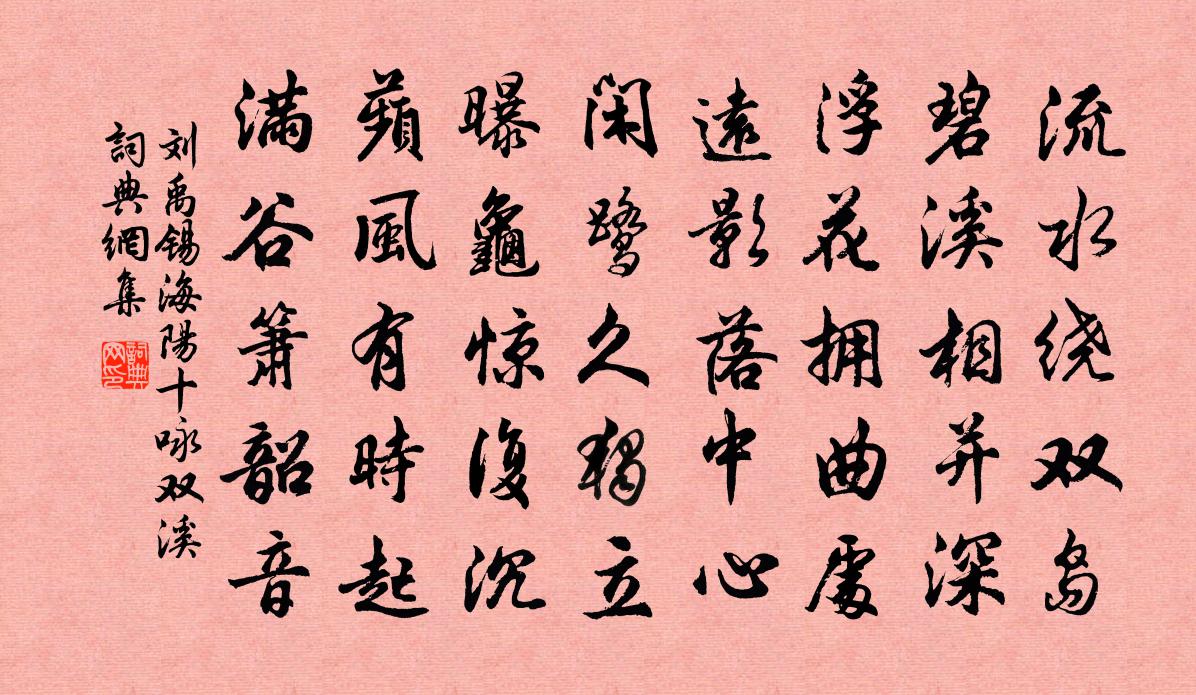 流水绕双岛
碧溪相并深
浮花拥曲處
遠影落中心
闲鹭久獨立
曝龜惊復沉
蘋風有時起
满谷箫韶音
刘禹锡海陽十咏双溪
詞典網集
詞典网印